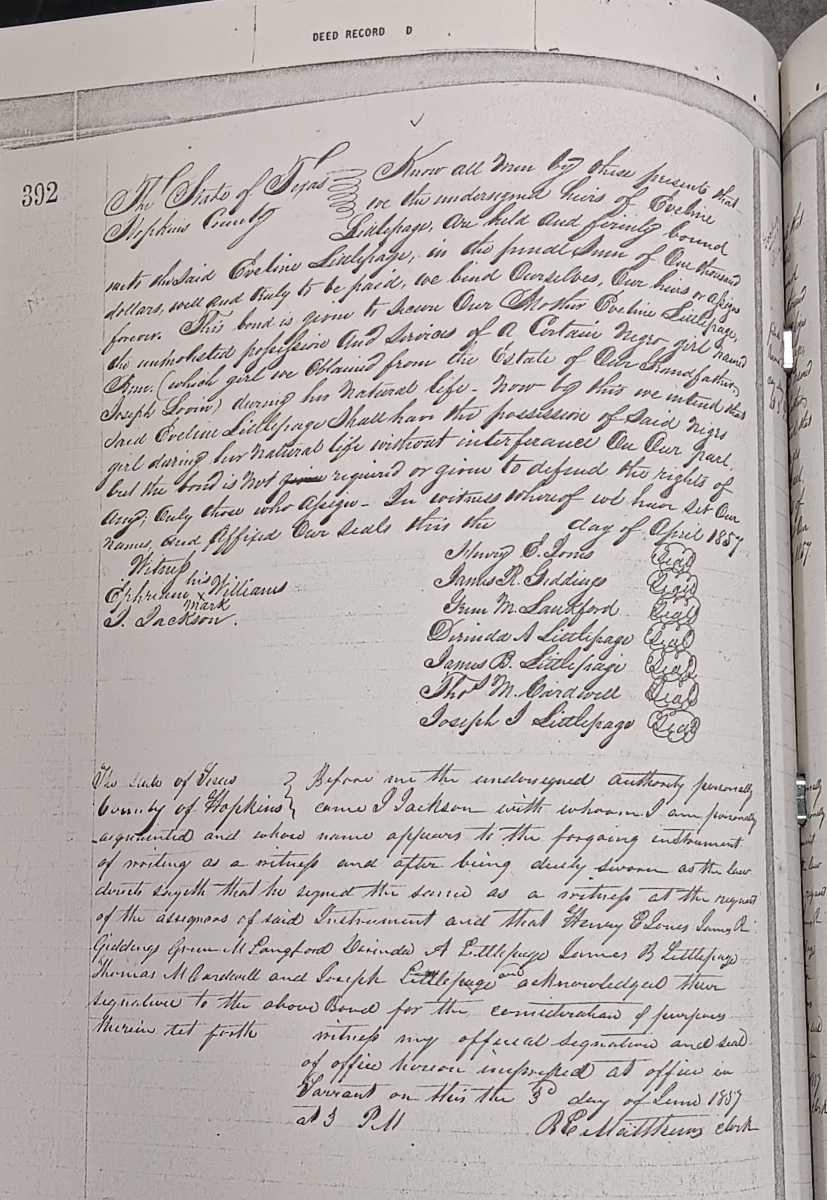 DEED RECORD D
392
The State of Texas
Hopkins County
Know all men by these presents that
we the undersigned heirs of Eveline
Littlepage, are held and firmly bound
unto the said Eveline Littlepage, in the penal sum of One thousand
dollars, well and truly to be paid, we bind Ourselves, Our heirs or assigns
forever. This bond is given to secure Our Mother Eveline Littlepage,
the unmolested possession and services of a Certain Negro girl named
(which girl we Obtained from the Estate of Our Grandfather,
Joseph) during her Natural life - Now by this we intend that
said Eveline Littlepage Shall have the possession of said Negro
girl during her Natural life without interferance On Our part.
but the bond is Not given required or given to defend the rights of
any, Only those who assign - In witness whereof we have set Our
names, and Affixed Our seals this the day of April 1857
Witness
Ephriam his x mark Williams
J. Jackson.
Henry E. Jones Seal
James R. Giddings Seal
M Lankford Seal
Dirinda A Littlepage Seal
James B. Littlepage Seal
Thos M. Cardwell Seal
Joseph J Littlepage Seal
The State of Texas
County of Hopkins
Before me the undersigned authority personally
came J Jackson with whoom I am personally
acquainted and whose name appears to the forgoing instrument
of writing as a witness and after being duely sworn as the law
directs sayeth that he signed the same as a witness at the request
of the assignors of said Instrument and that Henry E Jones James R
Giddings Green M Langford Dirinda A Littlepage James B Littlepage
Thomas M Cardwell and Joseph Littlepage and acknowledged their
signature to the above Bond for the consideration & purposes
therein set forth
witness my official signature and seal
of office hereon impressed at office in
Tarrant on this the 3d day of June 1857
at 3 PM
R E Matthews clerk